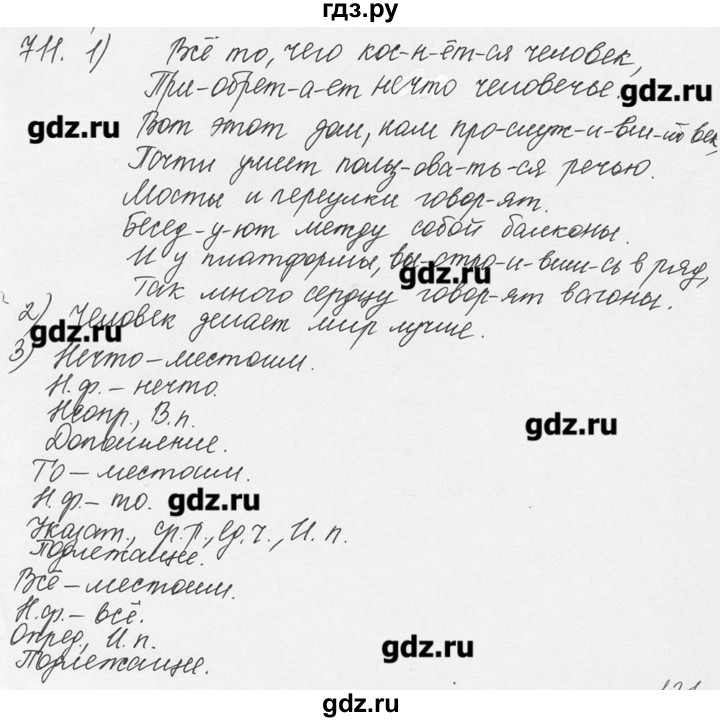 гдз.ру
711. 1) Всё то, чего кос-н-ёт-ся человек,
При-обрет-а-ет нечто человечье.
gdz.ru
gdz.ru
Вот этот дом, нам про-служ-и-вш-ий век,
Почти умеет польз-ова-ть-ся речью.
Мосты и переулки говор-ят.
Бесед-у-ют между собой балконы.
И у платформы, вы-стро-и-вши-сь в ряд,
gdz.ru
Так много сердцу говор-ят вагоны.
2) Человек делает мир лучше.
gdz.ru
3) Нечто – местоим.
Н.ф. – нечто.
Неопр., В.п.
gdz.ru
Дополнение.
То – местоим.
Н.ф. – то.
gdz.ru
Указат., ср.р., ед.ч., И.п.
Подлежащее.
Всё – местоим.
Н.ф. – всё.
Опред., И.п.
gdz.ru
Подлежащее.
gdz.ru